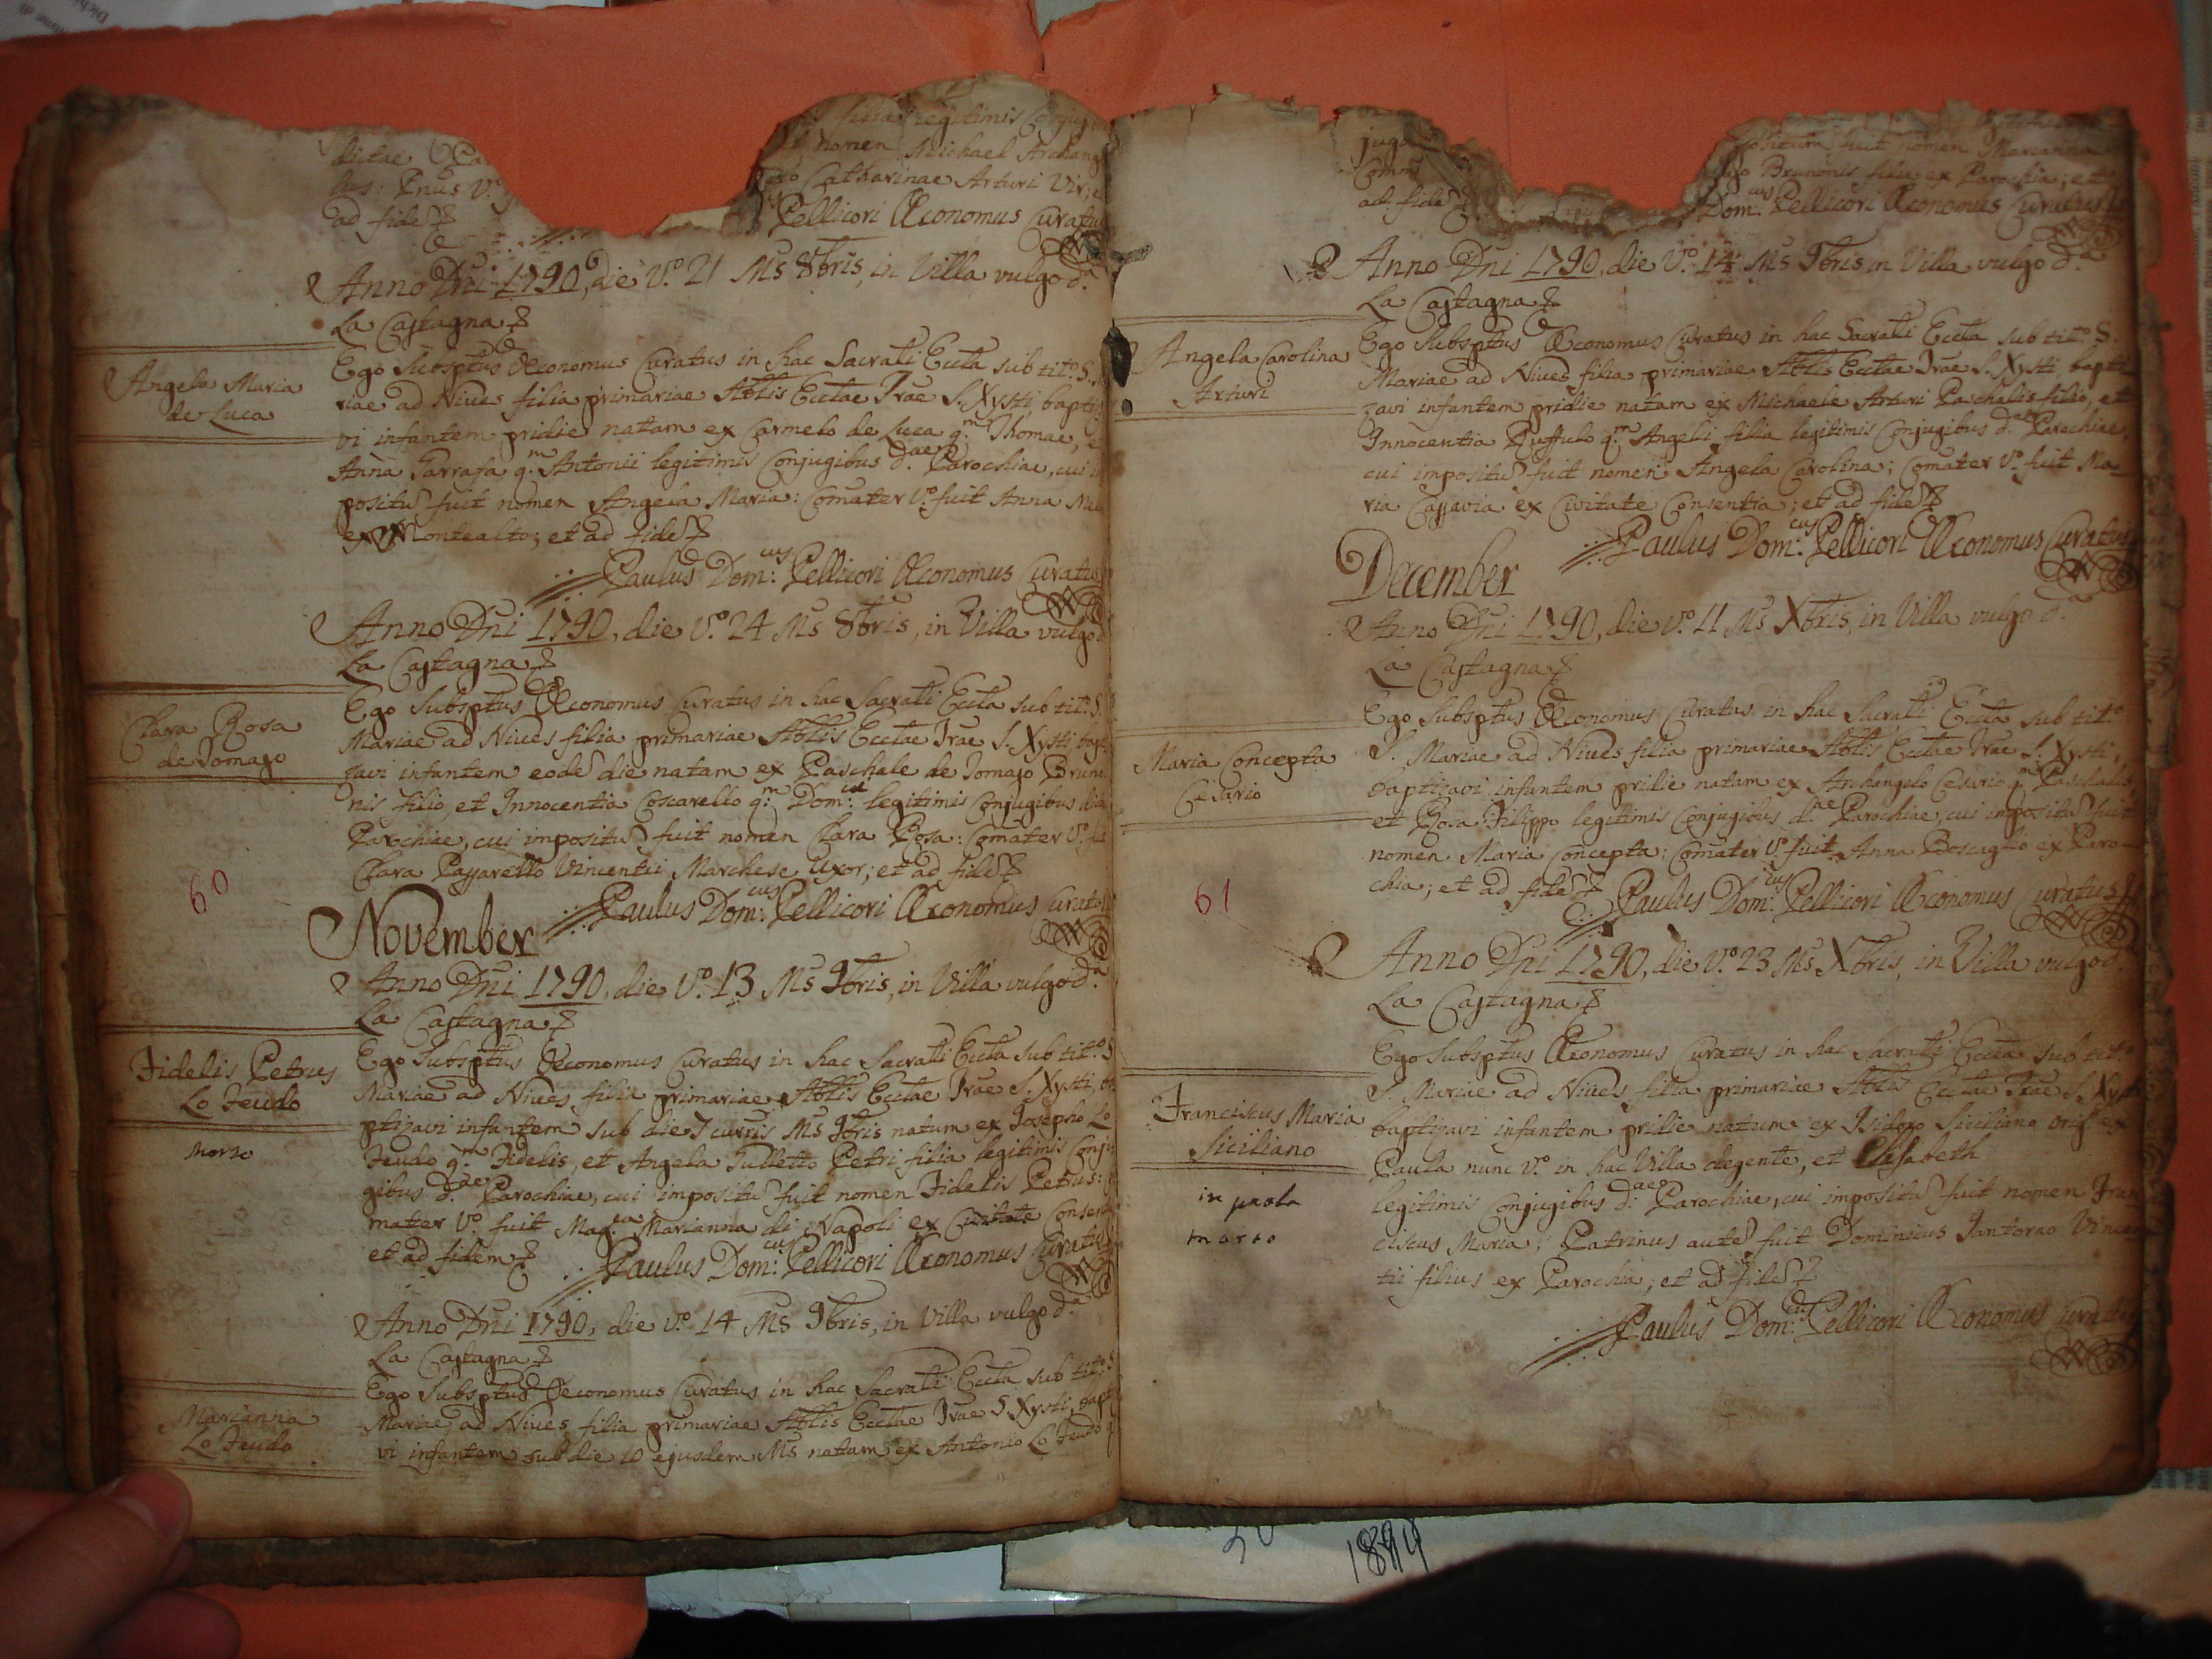 filia legitimis Conjug
dictae
nomen Michael Archang
lus: Pnus V.o
Catharinae Arturi Vir; e
ad fide
Pellicori Œconomus Curatus
Anno Dni 1790, die V.o 21 Ms 8bris, in Villa vulgo d.a
La Castagna
Angela Maria
de Luca
Ego Subsptus Œconomus Curatus in hac Sacrati Eccta sub tit.o S.
riae ad Nives filia primariae Abtis Ecctae Irae S. Xysti, bapti
vi infantem pridie natam ex Carmelo de Luca q.m Thomae, e
Anna Garrafa q.m Antonii legitimis Conjugibus d.ae Parochiae, cui
positu fuit nomen Angela Maria: Comater V.o fuit Anna
ex Montealto; et ad fide
Paulus Dom:cus Pellicori Œconomus Curatus
Anno Dni 1790, die V.o 24 Ms 8bris, in Villa vulgo
La Castagna
Clara Rosa
de Tomaso
Ego Subsptus Œconomus Curatus in hac Sacrati Eccta sub tit.o S.
Mariae ad Nives filia primariae Abtis Ecctae Irae S. Xysti, bapt
zavi infantem eode die natam ex Paschale de Tomaso Bruno
nis filio, et Innocentia Coscarello q.m Dom: legitimis Conjugibus dic
Parochiae, cui impositu fuit nomen Clara Rosa: Comater V.o
Clara Passaretto Vincentii Marchese Uxor; et ad fide
60
Paulus Dom:cus Pellicori Œconomus Curatus
November
Anno Dni 1790, die V.o 13 Ms 9bris, in Villa vulgo d.a
La Castagna
Fidelis Petrus
Lo Feudo
morto
Ego Subsptus Œconomus Curatus in hac Sacrati Eccta sub tit.o S
Mariae ad Nives filia primariae Abtis Ecctae Irae S. Xysti, ba
ptizavi infantem sub die 7 curris Ms 9bris natum ex Josepho Lo
Feudo q.m Fidelis, et Angela Tulletto Petri filia legitimis Conju
gibus d.ae Parochiae, cui impositu fuit nomen Fidelis Petrus:
mater V.o fuit Mag.ca Marianna di Napoli ex Civitate Consen
et ad fidem
Paulus Dom:cus Pellicori Œconomus Curatus
Anno Dni 1790, die V.o 14 Ms 9bris, in Villa vulgo d.a
La Castagna
Marianna
Lo Feudo
Ego Subsptus Œconomus Curatus in hac Sacrati Eccta sub tit.o S
Mariae ad Nives filia primariae Abtis Ecctae Irae S. Xysti, bapt
vi infantem sub die 10 ejusdem Ms natam ex Antonio Lo Feudo q
juga
positum fuit nomen Marianna
Comm
Brunonis filia ex Parochia; et
ad fide
Dom:cus Pellicori Œconomus Curatus
Anno Dni 1790, die V.o 14 Ms 9bris in Villa vulgo d.a
La Castagna
Angela Carolina
Arturi
Ego Subsptus Œconomus Curatus in hac Sacrati Eccta sub tit.o S.
Mariae ad Nives filia primariae Abtis Ecctae Irae S. Xysti bapti
zavi infantem pridie natam ex Michaele Arturi Paschalis filio, et
Innocentia Ruffulo q.m Angeli filia legitimis Conjugibus d.ae Parochiae,
cui impositu fuit nomen Angela Carolina; Comater V.o fuit Ma
ria Cassavia ex Civitate Consentia; et ad fide
Paulus Dom:cus Pellicori Œconomus Curatus
December
Anno Dni 1790, die V.o 11 Ms Xbris, in Villa vulgo d.a
La Castagna
Maria Concepta
Cesario
Ego Subsptus Œconomus Curatus in hac Sacrati Eccta sub tit.o
S. Mariae ad Nives filia primariae Abtis Ecctae Irae S. Xysti,
baptizavi infantem pridie natam ex Archangelo Cesario q.m Paschalis
et Rosa Filippo legitimis Conjugibus d.ae Parochiae, cui impositu fuit
nomen Maria Concepta: Comater V.o fuit Anna Boscaglio ex Paro-
chia; et ad fide
Paulus Dom:cus Pellicori Œconomus Curatus
61
Anno Dni 1790, die V.o 23 Ms Xbris, in Villa vulgo d.a
La Castagna
Franciscus Maria
Siciliano
in paola
morto
Ego Subsptus Œconomus Curatus in hac Sacrati Eccta sub tit.o
S. Mariae ad Nives filia primariae Abtis Ecctae Irae S. Xysti
baptizavi infantem pridie natum ex Isidoro Siciliano orig. ex
Paula nunc V.o in hac Villa degente, et Elisabeth
legitimis Conjugibus d.ae Parochiae, cui impositu fuit nomen Fran
ciscus Maria; Patrinus aute fuit Dominicus Iantorno Vincen
tii filius ex Parochia; et ad fide
Paulus Dom:cus Pellicori Œconomus Curatus
1894